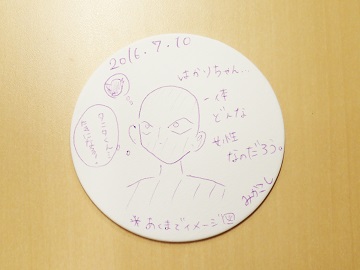 2016.7.10
はかりちゃん…
一体
どんな
女性
なのだろう。
みかこし
*あくまでイメージ図